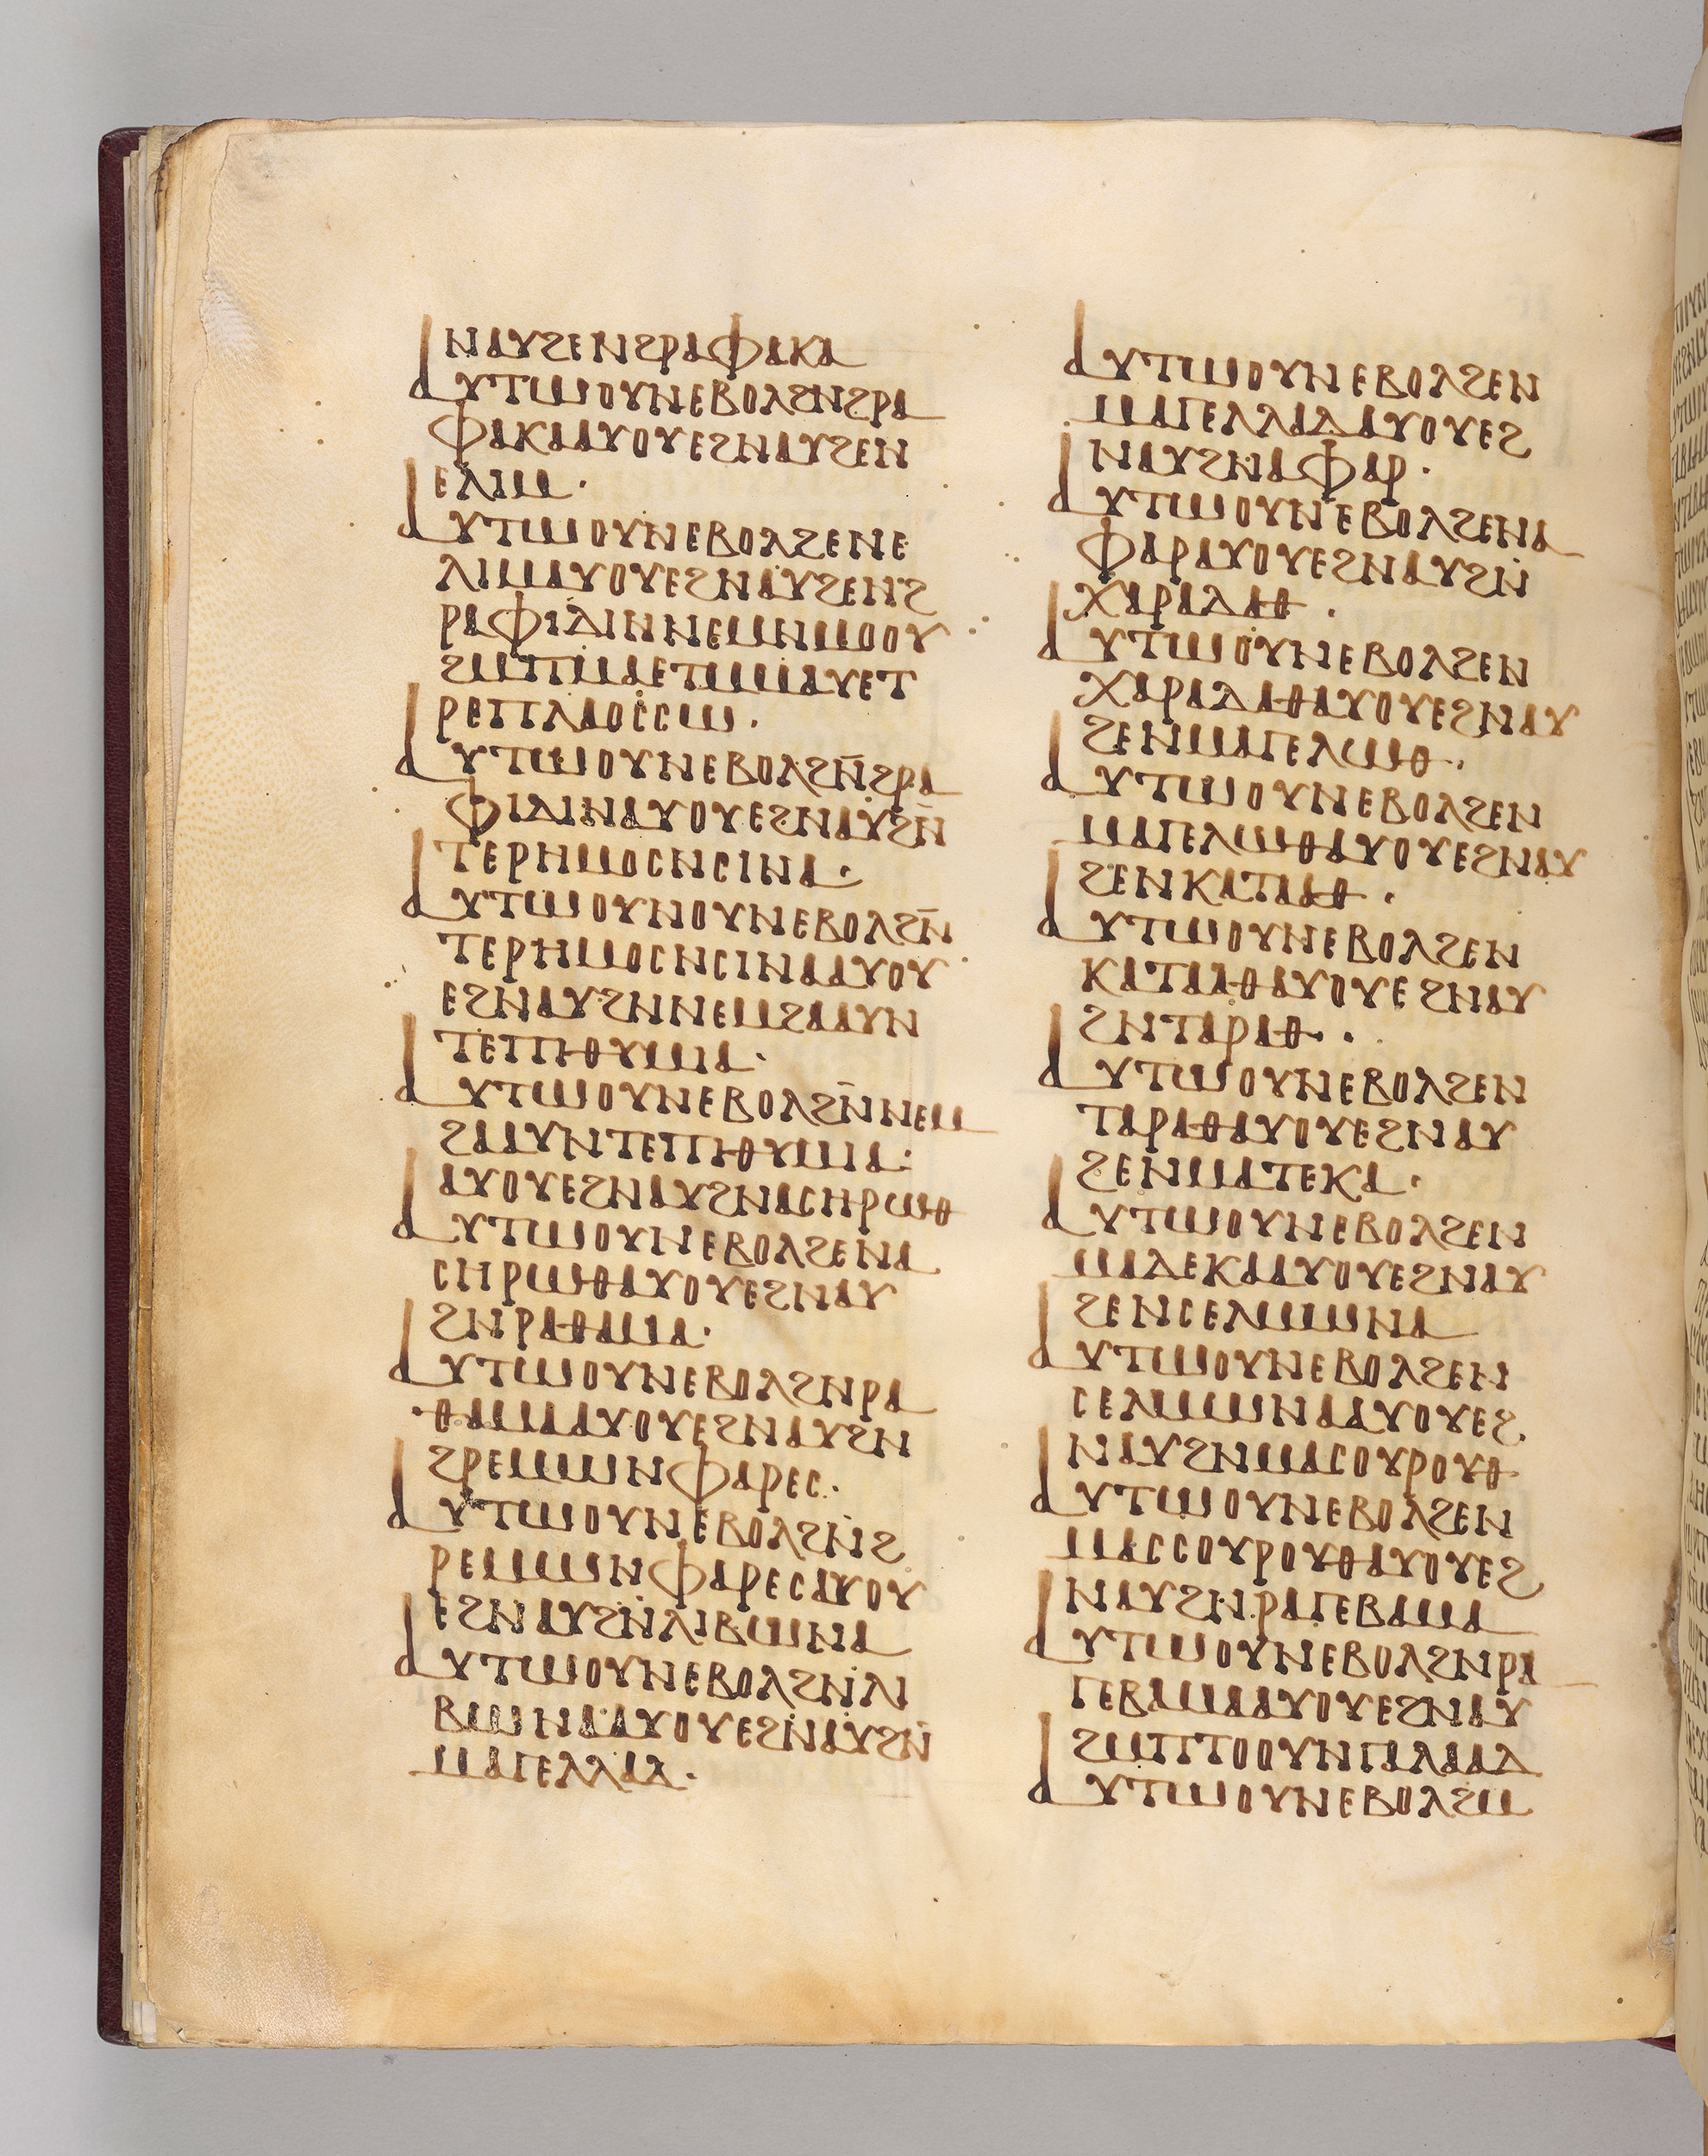 ⲛⲁⲩϩⲉⲛϩⲣⲁⲫⲁⲕⲁ
ⲁⲩⲧⲱⲟⲩⲛⲉⲃⲟⲗϩⲛϩⲣⲁ
ⲫⲁⲕⲁⲁⲩⲟⲩⲉϩⲛⲁⲩϩⲉⲛ
ⲉⲗⲓⲙ·
ⲁⲩⲧⲱⲟⲩⲛⲉⲃⲟⲗϩⲉⲛⲉ
ⲗⲓⲙⲁⲩⲟⲩⲉϩⲛⲁⲩϩⲉⲛϩ
ⲣⲁⲫⲓⲇⲓⲛⲛⲉⲙⲛⲙⲟⲟⲩ
ϩⲙⲡⲙⲁⲉⲧⲙⲙⲁⲩⲉⲧ
ⲣⲉⲡⲗⲁⲟⲥⲥⲱ·
ⲁⲩⲧⲱⲟⲩⲛⲉⲃⲟⲗϩⲛ̄ϩⲣⲁ
ⲫⲓⲇⲓⲛⲁⲩⲟⲩⲉϩⲛⲁⲩϩⲛ̄
ⲧⲉⲣⲏⲙⲟⲥⲛⲥⲓⲛⲁ·
ⲁⲩⲧⲱⲟⲩⲛⲟⲩⲛⲉⲃⲟⲗϩⲛ̄
ⲧⲉⲣⲏⲙⲟⲥⲛⲥⲓⲛⲁⲁⲩⲟⲩ
ⲉϩⲛⲁⲩϩⲛⲛⲉⲙϩⲁⲁⲩⲛ
ⲧⲉⲡⲓⲑⲩⲙⲓⲁ·
ⲁⲩⲧⲱⲟⲩⲛⲉⲃⲟⲗϩⲛ̄ⲛⲉⲙ
ϩⲁⲁⲩⲛⲧⲉⲡⲓⲑⲩⲙⲓⲁ·
ⲁⲩⲟⲩⲉϩⲛⲁⲩϩⲛⲁⲥⲏⲣⲱⲑ
ⲁⲩⲧⲱⲟⲩⲛⲉⲃⲟⲗϩⲉⲛⲁ
ⲥⲏⲣⲱⲑⲁⲩⲟⲩⲉϩⲛⲁⲩ
ϩⲛⲣⲁⲑⲁⲙⲁ·
ⲁⲩⲧⲱⲟⲩⲛⲉⲃⲟⲗϩⲛⲣⲁ
ⲑⲁⲙⲁⲁⲩⲟⲩⲉϩⲛⲁⲩϩⲛ
ϩⲣⲉⲙⲱⲛⲫⲁⲣⲉⲥ·
ⲁⲩⲧⲱⲟⲩⲛⲉⲃⲟⲗϩⲛϩ
ⲣⲉⲙⲱⲛⲫⲁⲣⲉⲥⲁⲩⲟⲩ
ⲉϩⲛⲁⲩϩⲛⲗⲓⲃⲱⲛⲁ
ⲁⲩⲧⲱⲟⲩⲛⲉⲃⲟⲗϩⲛⲗⲓ
ⲃⲱⲛⲁⲁⲩⲟⲩⲉϩⲛⲁⲩϩⲛ̄
ⲙⲁⲅⲉⲗⲗⲁⲇ·
ⲁⲩⲧⲱⲟⲩⲛⲉⲃⲟⲗϩⲉⲛ
ⲙⲁⲅⲉⲗⲗⲁⲇⲁⲩⲟⲩⲉϩ
ⲛⲁⲩϩⲛⲁⲫⲁⲣ·
ⲁⲩⲧⲱⲟⲩⲛⲉⲃⲟⲗϩⲉⲛⲁ
ⲫⲁⲣⲁⲩⲟⲩⲉϩⲛⲁⲩϩⲛ
ⲭⲁⲣⲁⲇⲁⲑ·
ⲁⲩⲧⲱⲟⲩⲛⲉⲃⲟⲗϩⲉⲛ
ⲭⲁⲣⲁⲇⲁⲑⲁⲩⲟⲩⲉϩⲛⲁⲩ
ϩⲉⲛⲙⲁⲅⲉⲗⲱⲑ·
ⲁⲩⲧⲱⲟⲩⲛⲉⲃⲟⲗϩⲉⲛ
ⲙⲁⲅⲉⲗⲱⲑⲁⲩⲟⲩⲉϩⲛⲁⲩ
ϩⲉⲛⲕⲁⲧⲁⲁⲑ·
ⲁⲩⲧⲱⲟⲩⲛⲉⲃⲟⲗϩⲉⲛ
ⲕⲁⲧⲁⲁⲑⲁⲩⲟⲩⲉϩⲛⲁⲩ
ϩⲛⲧⲁⲣⲁⲑ·
ⲁⲩⲧⲱⲟⲩⲛⲉⲃⲟⲗϩⲉⲛ
ⲧⲁⲣⲁⲑⲁⲩⲟⲩⲉϩⲛⲁⲩ
ϩⲉⲛⲙⲁⲧⲉⲕⲁ·
ⲁⲩⲧⲱⲟⲩⲛⲉⲃⲟⲗϩⲉⲛ
ⲙⲁⲇⲉⲕⲁⲁⲩⲟⲩⲉϩⲛⲁⲩ
ϩⲉⲛⲥⲉⲗⲙⲱⲛⲁ
ⲁⲩⲧⲱⲟⲩⲛⲉⲃⲟⲗϩⲉⲛ
ⲥⲉⲗⲙⲱⲛⲁⲁⲩⲟⲩⲉϩ
ⲛⲁⲩϩⲛⲙⲁⲥⲟⲩⲣⲟⲩⲑ
ⲁⲩⲧⲱⲟⲩⲛⲉⲃⲟⲗϩⲉⲛ
ⲙⲁⲥⲥⲟⲩⲣⲟⲩⲑⲁⲩⲟⲩⲉϩ
ⲛⲁⲩϩⲛⲣⲁⲅⲉⲃⲁⲙⲁ
ⲁⲩⲧⲱⲟⲩⲛⲉⲃⲟⲗϩⲛⲣⲁ
ⲅⲉⲃⲁⲙⲁⲁⲩⲟⲩⲉϩⲛⲁⲩ
ϩⲙⲡⲧⲟⲟⲩⲛⲅⲁⲗⲁⲁⲇ
ⲁⲩⲧⲱⲟⲩⲛⲉⲃⲟⲗϩⲙ